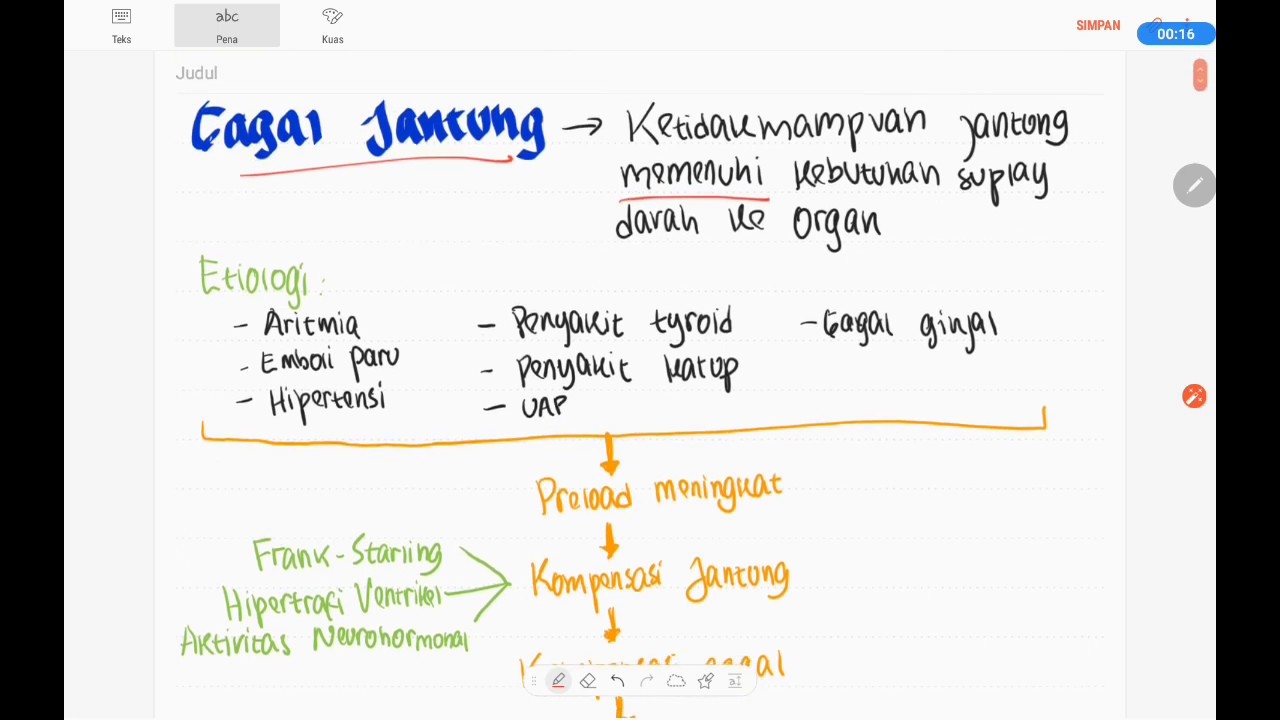 Teks
abc
Pena
Kuas
SIMPAN
00:16
Judul
Gagal Jantung → Ketidakmampuan jantung
memenuhi kebutuhan suplay
darah ke organ
Etiologi:
- Aritmia
- Emboli paru
- Hipertensi
- Penyakit tyroid
- Penyakit katup
- UAP
- Gagal ginjal
Preload meningkat
Frank-Starling
Hipertrofi Ventrikel
Aktivitas Neurohormonal
Kompensasi Jantung
gagal